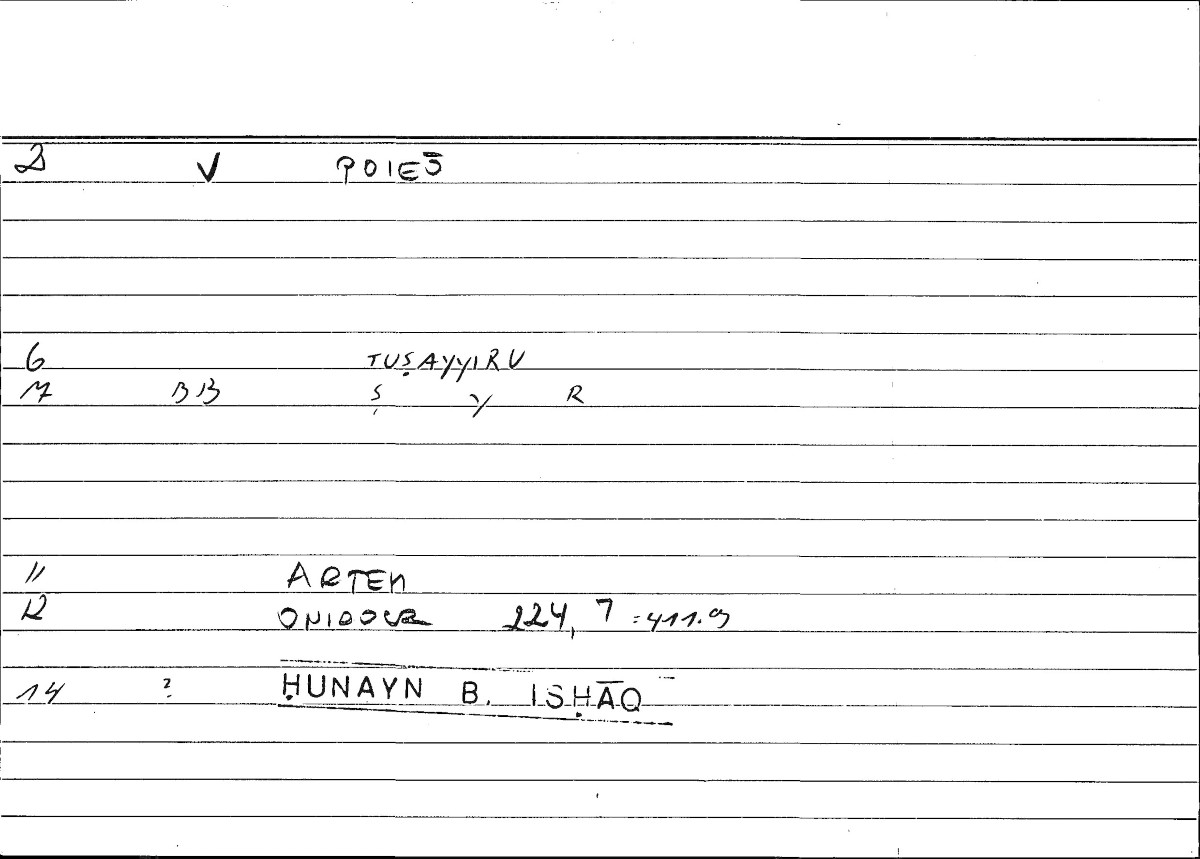 2 V POIEŌ
6 TUṢAYYIRU
7 BB Ṣ Y R
11 ARTEM
12 ONIDOUR 224, 7 = 411.9
14 ? ḤUNAYN B. ISḤĀQ